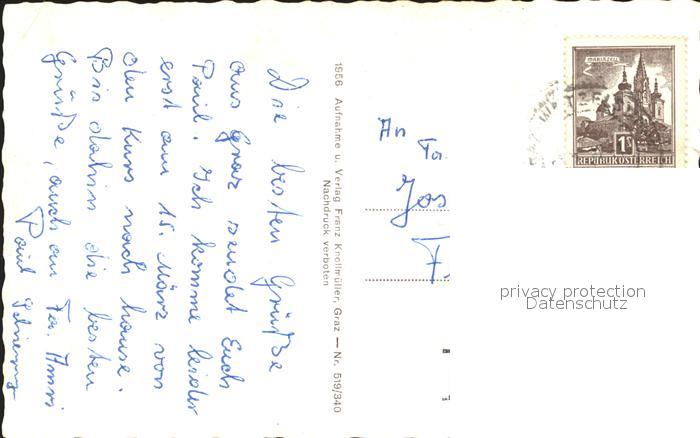 Die besten Grüße
aus Graz sendet Euch
Paul. Ich komme leider
erst am 15. März von
den Kurs nach hause.
Bis dahin die besten
Grüße, auch an Fa. Ammi
Paul
1956 Aufnahme u. Verlag Franz Knollmüller, Graz — Nr. 519/340
Nachdruck verboten
An
Fa.
Jos
F.
MARIAZELL
1S
REPUBLIK ÖSTERREICH
privacy protection
Datenschutz